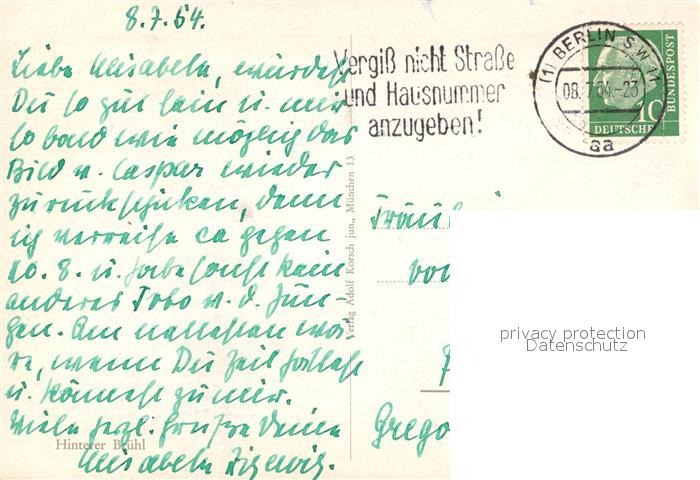 8.7.54.
Liebe Elisabeth, würdest
Du so gut sein u. mir
so bald wie möglich das
Bild v. Caspar wieder
zurückschicken, denn
ich verreise ca gegen
10.8. u. habe sonst kein
anderes Foto v. d. Jun-
gen. Am nettesten wä-
re, wenn Du Zeit hättest
u. kämest zu mir.
Viele herzl. Grüße Deine
Elisabeth
Hinterer Brühl
Verlag Adolf Korsch jun., München 13
Vergiß nicht Straße
und Hausnummer
anzugeben!
(1) BERLIN SW 11
08.7.54.-23
aa
10
DEUTSCHE
BUNDESPOST
Fräulein
von
Grego
privacy protection
Datenschutz